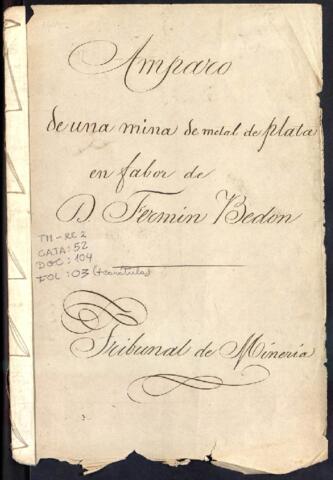 Amparo
de una mina de metal de plata
en fabor de
D Fermin Bedon
TM-RE2
CATA: 52
DOC: 104
FOL: 03 (+caratula)
Tribunal de Mineria